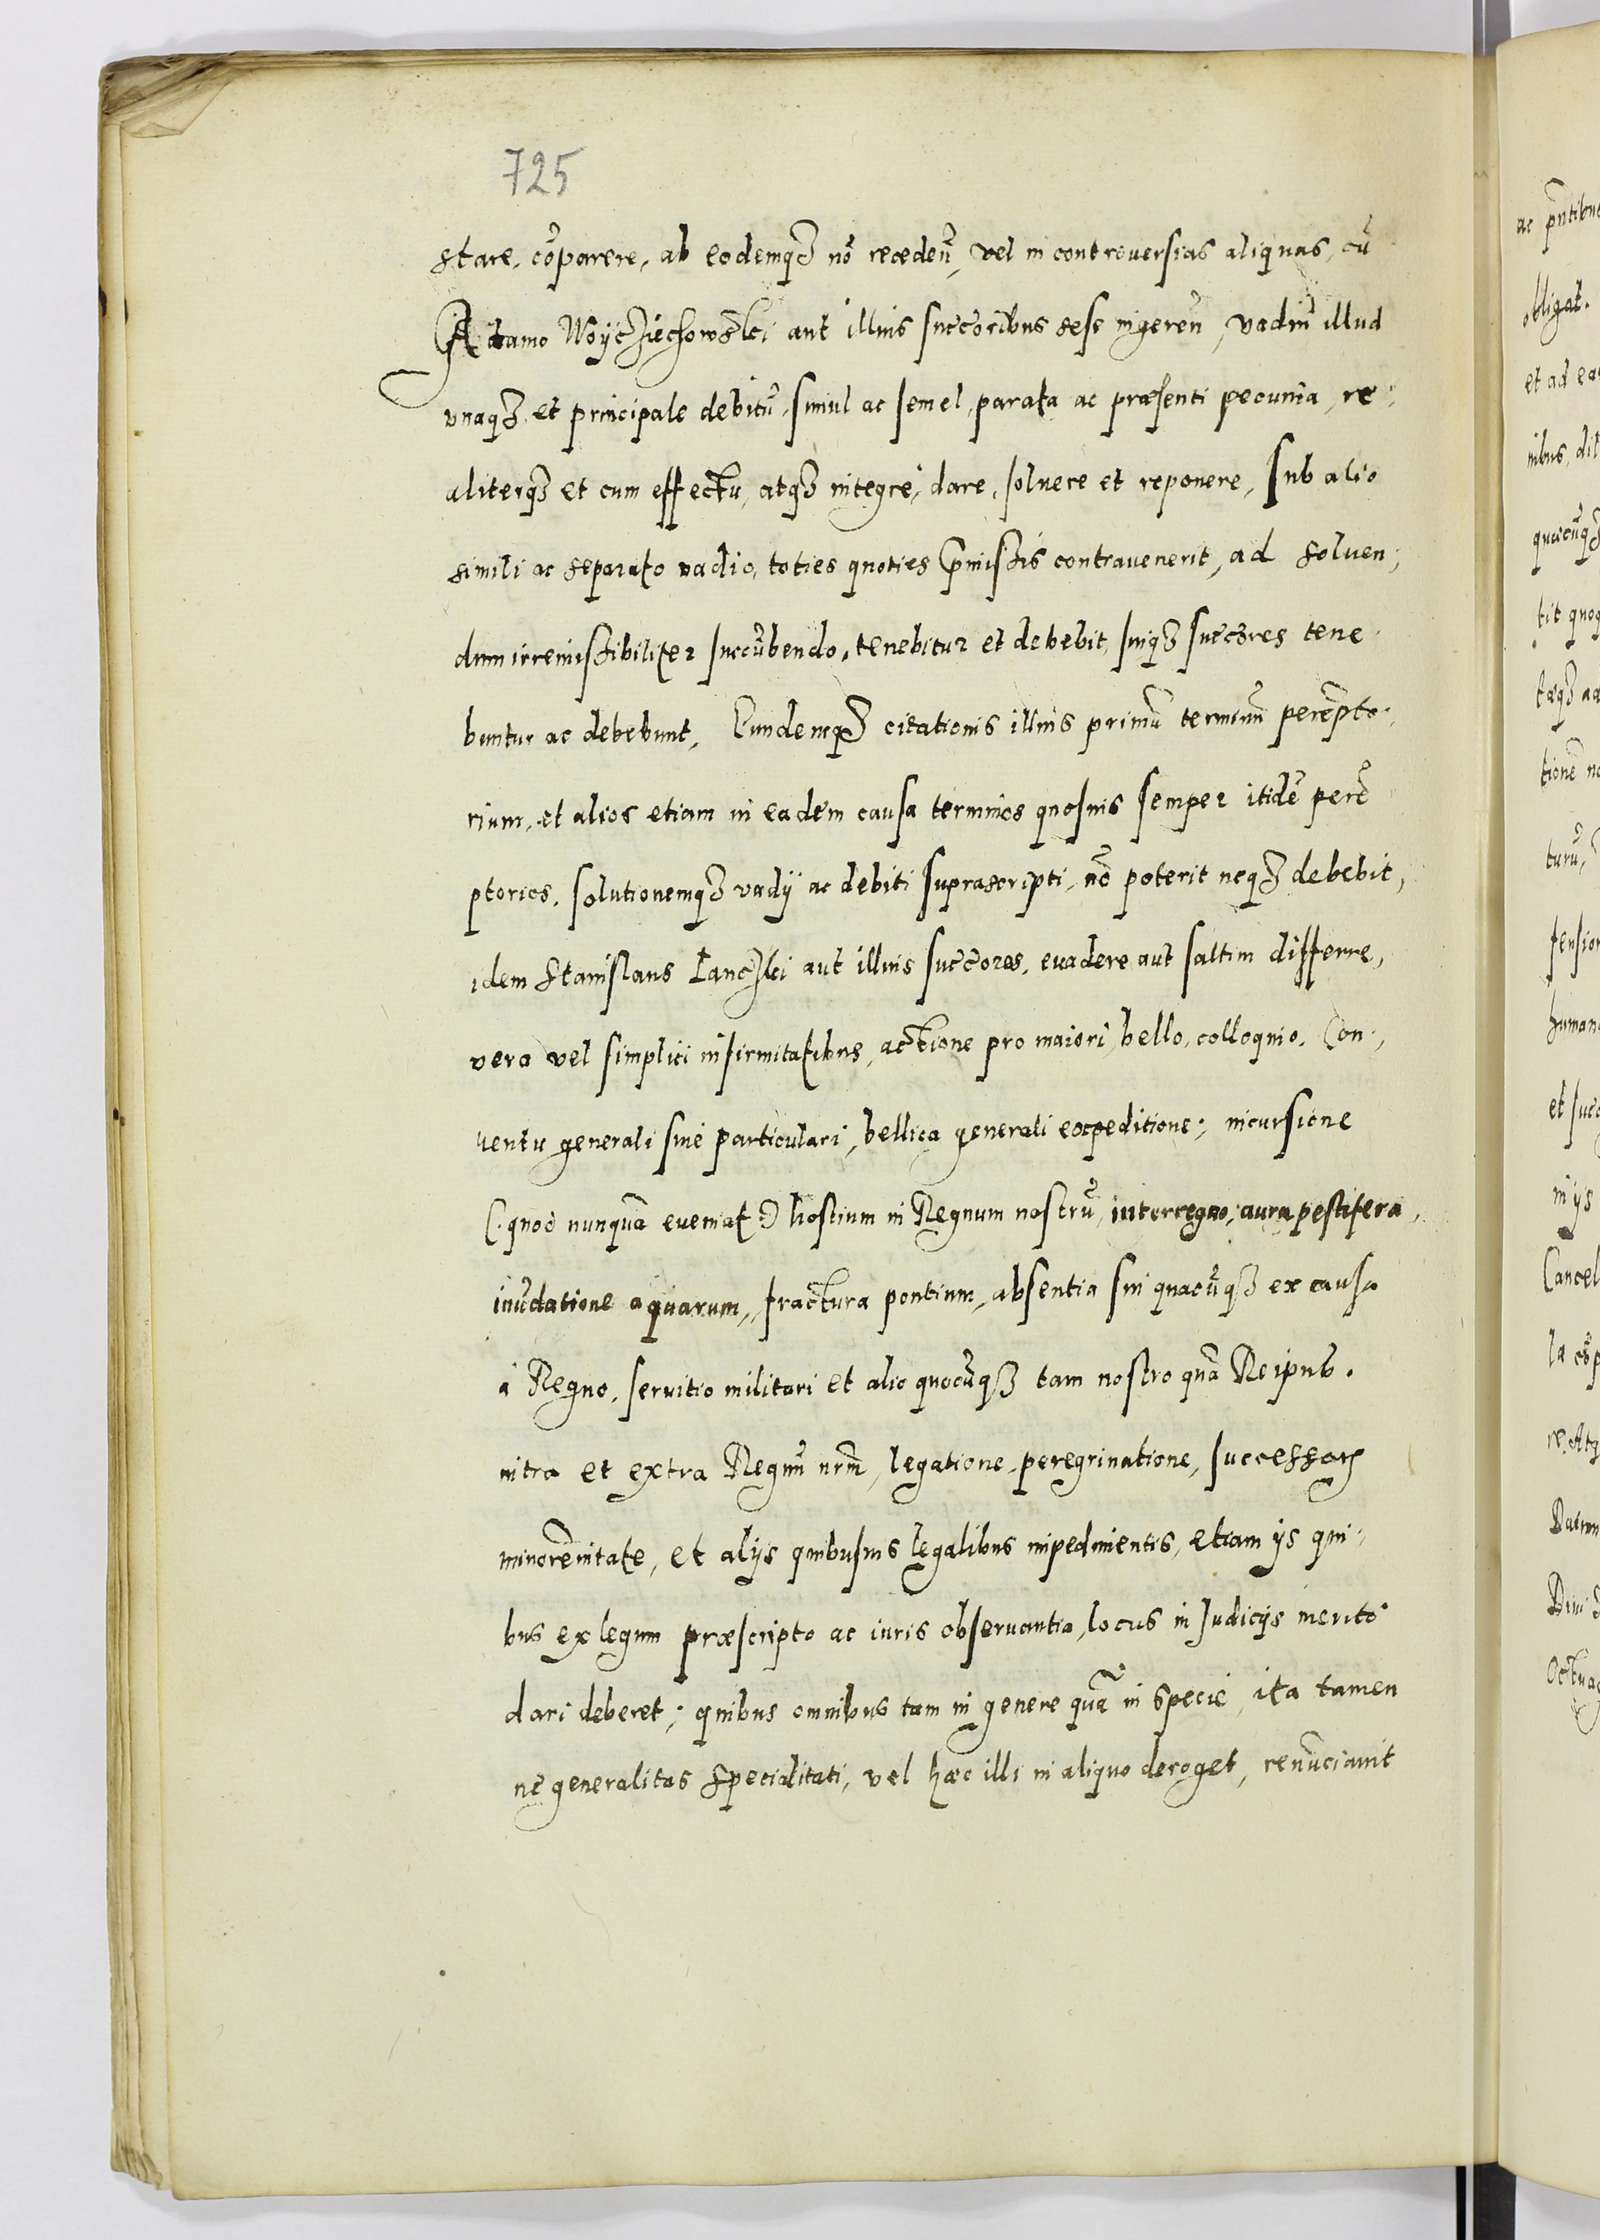 725
stare, cõparere, ab eodemq3 nõ recedeñ, vel in controuersias aliquas, cũ
Adamo Woyczïechowski aut illius succoribus sese ingereñ, vadiũ illud
vnaq3 et principale debitũ, simul ac semel, parata ac præsenti pecunia, re-
aliterq3 et cum effectu, atq3 integrè, dare, soluere et reponere, sub alio
simili ac separato vadio, toties quoties p̃missis contrauenerit, ad soluen-
dum irremissibiliter succũbendo, tenebitur et debebit, suiq3 succores tene-
buntur ac debebunt, Eundemq3 citationis illius primũ terminũ perẽpto-
rium, et alios etiam in eadem causa terminos quosuis semper itidẽ perẽ
ptorios, solutionemq3 vadÿ ac debiti suprascripti, nõ poterit neq3 debebit,
idem Stanislaus Lanczki aut illius succores, euadere aut saltim differre,
vera vel simplici infirmitatibus, actione pro maiori, bello, colloquio, Con-
uentu generali siuè particulari, bellica generali expeditione, incursione
(quod nunquã eueniat) hostium in Regnum nostrũ, interregno, aura pestifera,
inũdatione aquarum, fractura pontium, absentia sui quacũq3 ex causa
à Regno, seruitio militari et alio quocũq3 tam nostro quã Reipub.
intra et extra Regnũ nrm̃, legatione, peregrinatione, successorũ
minorẽnitate, et alijs quibusuis legalibus impedimentis, etiam ijs qui-
bus ex legum præscripto ac iuris obseruantia, locus in Judicijs meritò
dari deberet; quibus omnibus tam in genere quã in specie, ita tamen
nè generalitas specialitati, vel hæc illi in aliquo deroget, renũciauit
ac pñtibus
obligat.
et ad ea
nibus, dil
quæcũq3
tit quoq
tæq3
tionẽ no
turũ,
fension
humano
et succ
in ijs
Cancel
la
re. Atq
Datum
Diui
Octuag